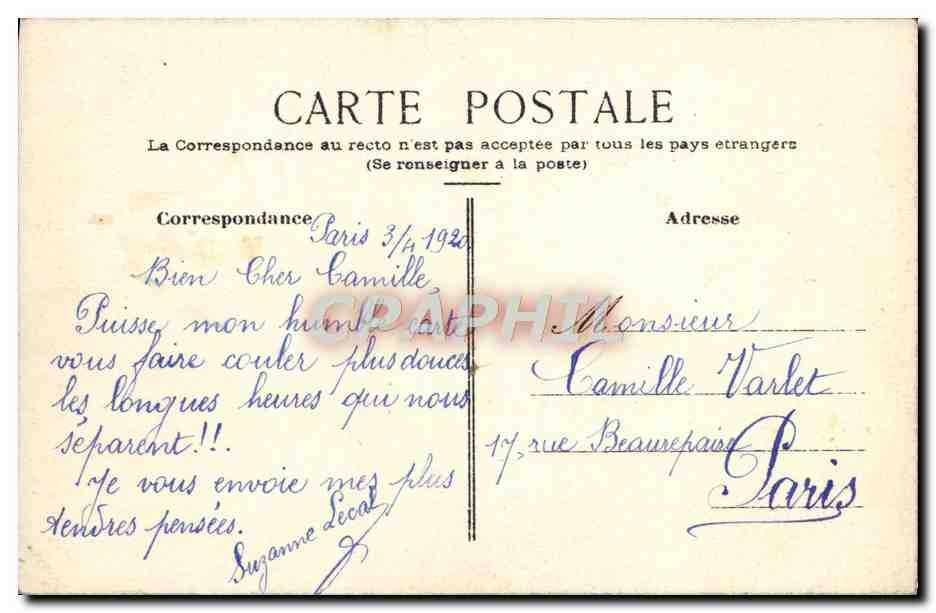 CARTE POSTALE
La Correspondance au recto n'est pas acceptée par tous les pays etrangers
(Se renseigner à la poste)
Correspondance
Paris 3/4 1920.
Bien Cher Camille,
Puisse mon humble carte
vous faire couler plus douces
les longues heures qui nous
séparent!!.
Je vous envoie mes plus
tendres pensées.
Suzanne Lecat
Adresse
Monsieur
Camille Varlet
17, rue Beaurepaire
Paris
CPAPHIL